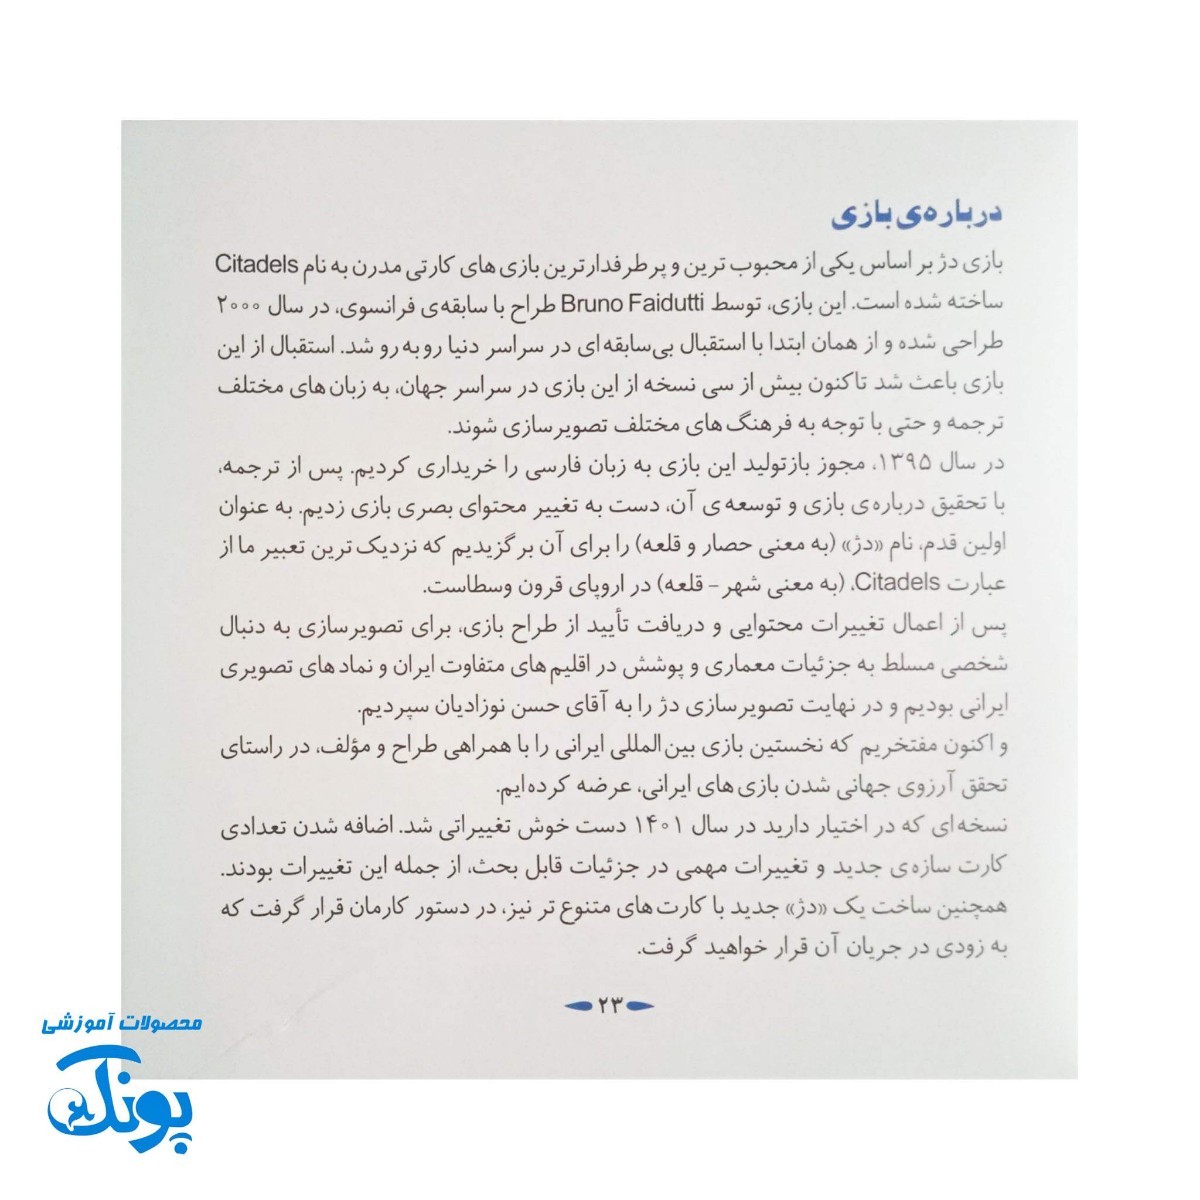 درباره‌ی بازی
بازی دژ بر اساس یکی از محبوب ترین و پر طرفدارترین بازی های کارتی مدرن به نام Citadels
ساخته شده است. این بازی، توسط Bruno Faidutti طراح با سابقه‌ی فرانسوی، در سال ۲۰۰۰
طراحی شده و از همان ابتدا با استقبال بی‌سابقه‌ای در سراسر دنیا رو به رو شد. استقبال از این
بازی باعث شد تاکنون بیش از سی نسخه از این بازی در سراسر جهان، به زبان های مختلف
ترجمه و حتی با توجه به فرهنگ های مختلف تصویرسازی شوند.
در سال ۱۳۹۵، مجوز بازتولید این بازی به زبان فارسی را خریداری کردیم. پس از ترجمه،
با تحقیق درباره‌ی بازی و توسعه‌ی آن، دست به تغییر محتوای بصری بازی زدیم. به عنوان
اولین قدم، نام «دژ» (به معنی حصار و قلعه) را برای آن برگزیدیم که نزدیک ترین تعبیر ما از
عبارت Citadels، (به معنی شهر - قلعه) در اروپای قرون وسطاست.
پس از اعمال تغییرات محتوایی و دریافت تأیید از طراح بازی، برای تصویرسازی به دنبال
شخصی مسلط به جزئیات معماری و پوشش در اقلیم های متفاوت ایران و نماد های تصویری
ایرانی بودیم و در نهایت تصویرسازی دژ را به آقای حسن نوزادیان سپردیم.
و اکنون مفتخریم که نخستین بازی بین‌المللی ایرانی را با همراهی طراح و مؤلف، در راستای
تحقق آرزوی جهانی شدن بازی های ایرانی، عرضه کرده‌ایم.
نسخه‌ای که در اختیار دارید در سال ۱۴۰۱ دست خوش تغییراتی شد. اضافه شدن تعدادی
کارت سازه‌ی جدید و تغییرات مهمی در جزئیات قابل بحث، از جمله این تغییرات بودند.
همچنین ساخت یک «دژ» جدید با کارت های متنوع تر نیز، در دستور کارمان قرار گرفت که
به زودی در جریان آن قرار خواهید گرفت.
۲۳
محصولات آموزشی
پونک